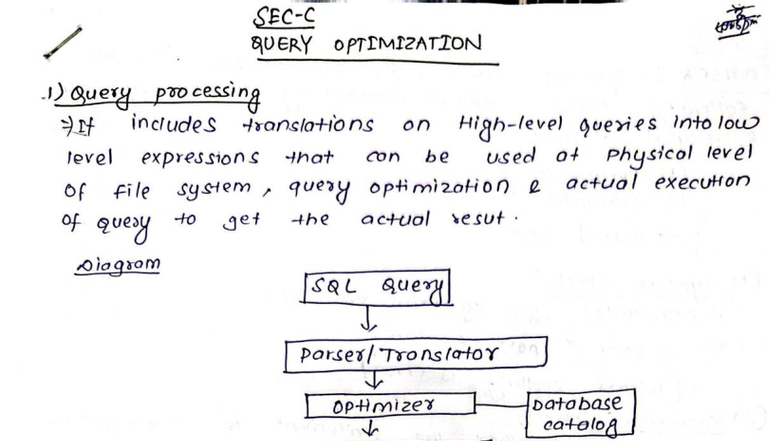 SEC-C
QUERY OPTIMIZATION
1) Query processing
⇒ It includes translations on High-level queries into low
level expressions that can be used at Physical level
of file system, query optimization & actual execution
of query to get the actual resut.
Diagram
SQL Query
Parser/Translator
Optimizer
Database
catalog